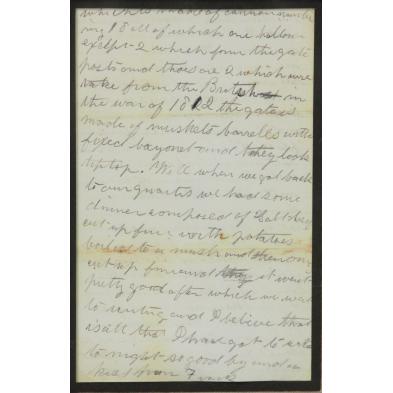 which is made of cannon number
ing 18 all of which are bellow
except 2 which form the gate
posts and thoes are 2 which were
take from the British in
the war of 1812 the gate is
made of muskets barrells with
fixed bayonet and they look
tip top. Well when we got back
to our quarters we had some
dinner composed of Salt
cut up fine with potatoes
boiled to a mush and
cut up fine and it went
pretty good after which we went
to writing and I believe that
is all the I have got to write
to night so good by and a
kiss from Frank